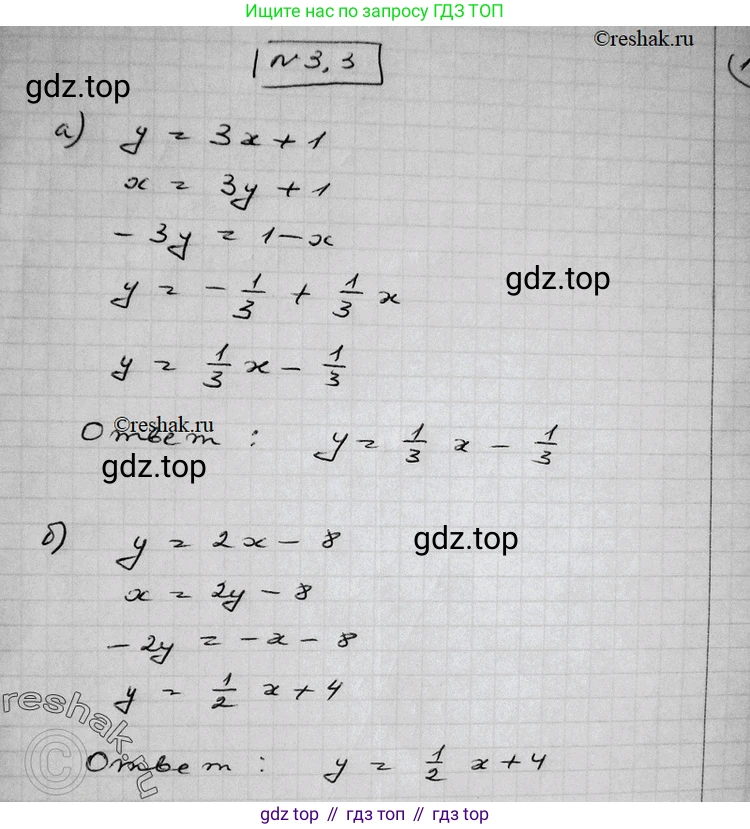 Ищите нас по запросу ГДЗ ТОП
©reshak.ru
№3.3
(1
gdz.top
а) y = 3x + 1
x = 3y + 1
- 3y = 1 - x
gdz.top
y = - 1/3 + 1/3 x
y = 1/3 x - 1/3
©reshak.ru
Ответ : y = 1/3 x - 1/3
gdz.top
б) y = 2x - 8
gdz.top
x = 2y - 8
- 2y = -x - 8
y = 1/2 x + 4
reshak.ru
©
Ответ : y = 1/2 x + 4
gdz.top // гдз топ // gdz.top // гдз top